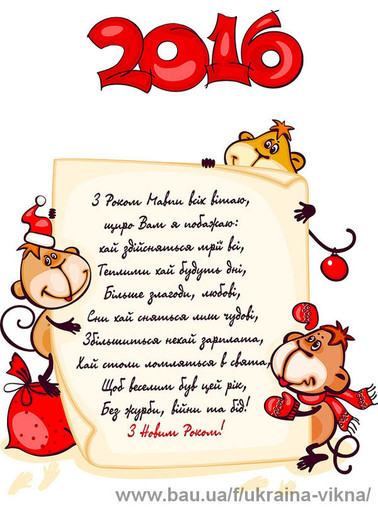 2016
З Роком Мавпи всіх вітаю,
щиро Вам я побажаю:
хай здійсняться мрії всі,
Теплими хай будуть дні,
Більше злагоди, любові,
Сни хай сняться лиш чудові,
Збільшиться нехай зарплата,
Хай столи ломляться в свята,
Щоб веселим був цей рік,
Без журби, війни та бід!
З Новим Роком!
www.bau.ua/f/ukraina-vikna/